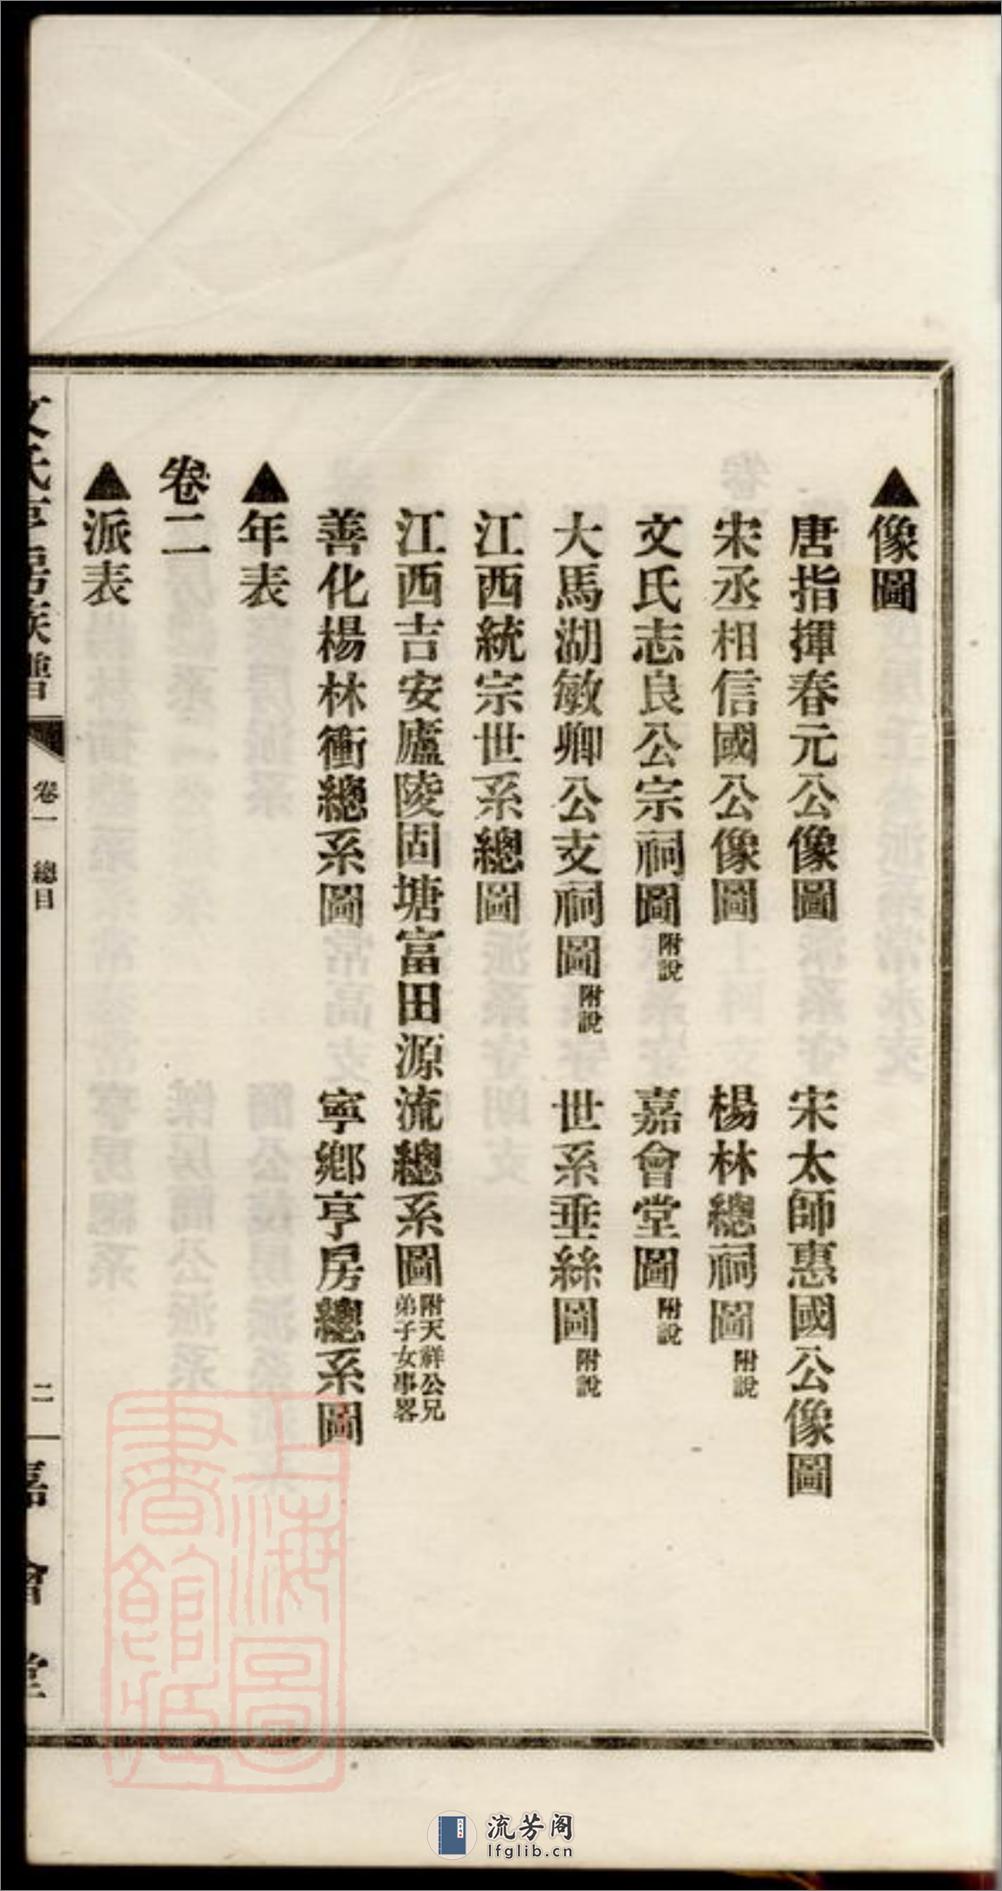 ▲像圖
唐指揮春元公像圖　宋太師惠國公像圖
宋丞相信國公像圖　楊林總祠圖附說
文氏志良公宗祠圖附說　嘉會堂圖附說
大馬湖敏卿公支祠圖附說　世系垂絲圖附說
江西統宗世系總圖
江西吉安廬陵固塘富田源流總系圖附天祥公兄弟子女事畧
善化楊林衝總系圖　寧鄉亨房總系圖
▲年表
卷二
▲派表
文氏亨房族譜　卷一　總目　二　嘉會堂
上海圖書館藏
流芳阁
lfglib.cn